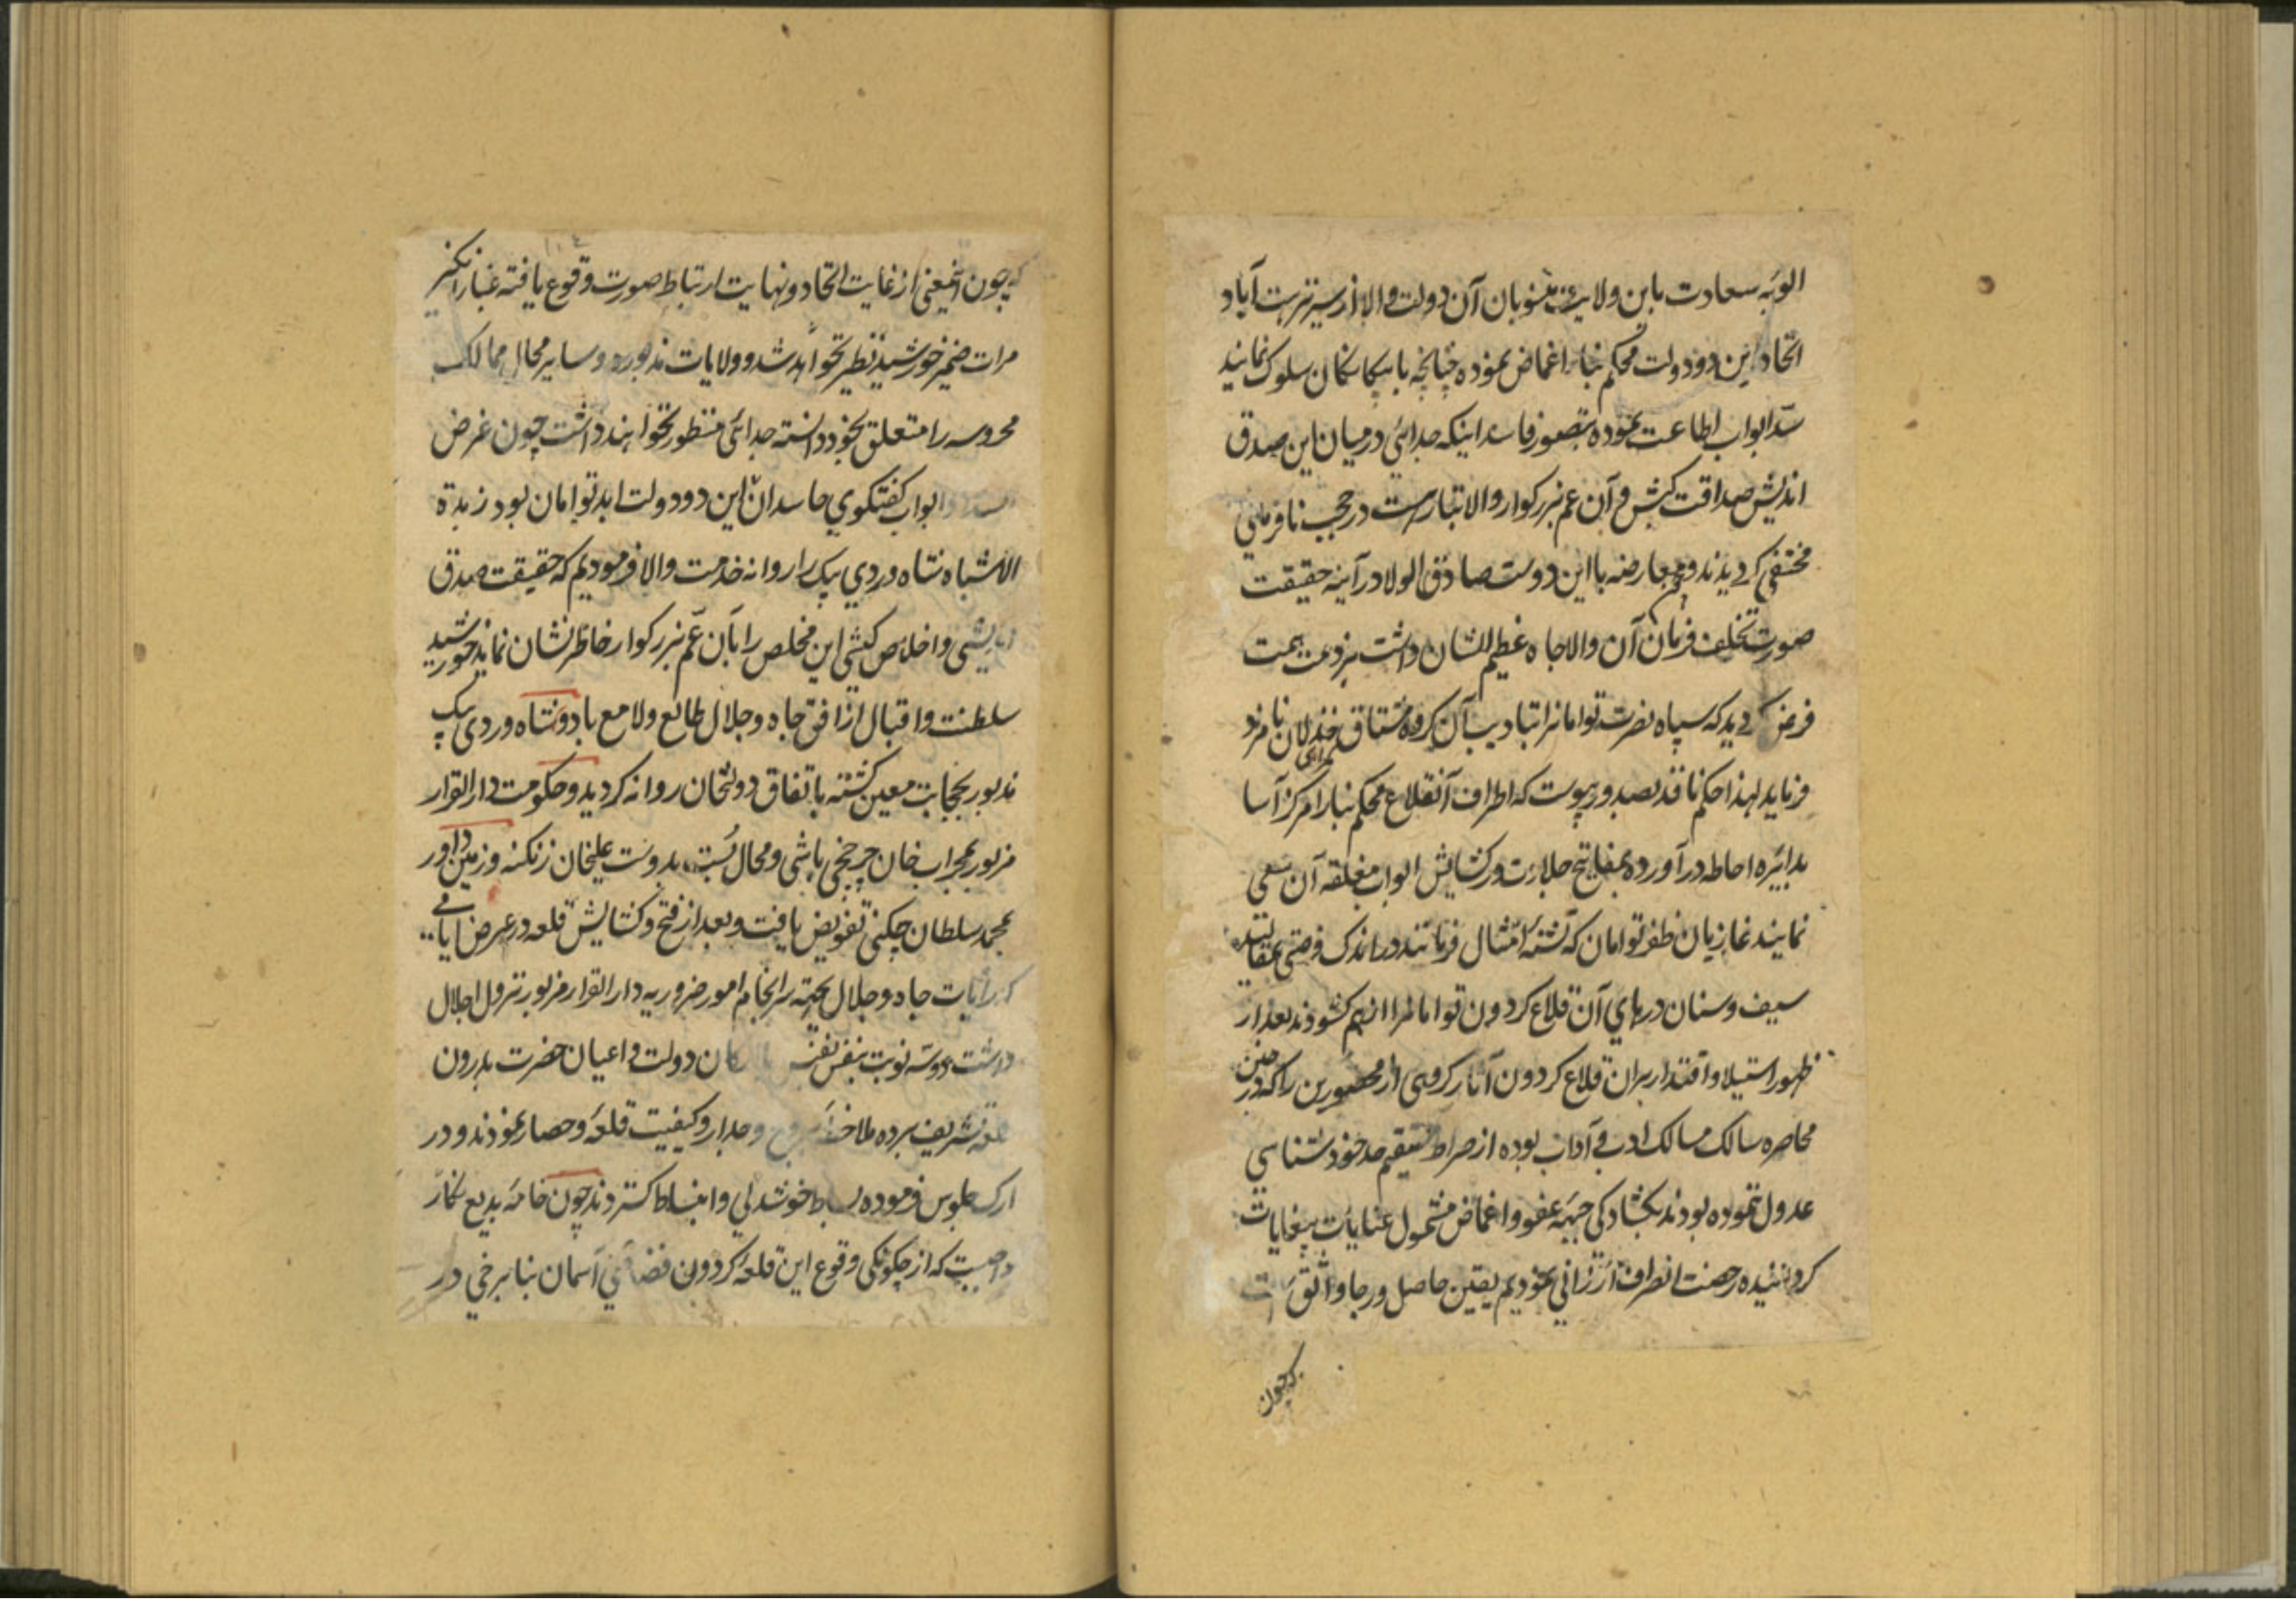 الویه سعادت باین ولایت منسوبان آن دولت والا از سر تربت آباد
اتحاد این دو دولت محکم بنا اغماض نموده چنانچه با بیکانکان سلوک نمایند
سد ابواب اطاعت نموده بتصور فاسد اینکه جدائی در میان این صدق
اندیش صداقت کیش و آن عم بزرکوار والاتبار هست در حجب نافرمانی
مختفی کردیدند و معارضه با این دوست صادق الولا در آینه حقیقت
صورت تخلف فرمان آن والاجاه عظیم الشان داشت بر ذمت همت
فرض کردید که سپاه نصرت توامانرا بتادیب آن کروه مشتاق خذلان نامزد
فرماید لهذا حکم نافذ بصدور پیوست که اطراف آنقلاع محکم بنا را مرکز آسا
بدایره احاطه در آورده بمفاتیح جلادت در کشایش ابواب مغلقه آن سعی
نمایند غازیان ظفر توامان که تشنه امتثال فرمانند در اندک فرصتی بمقالید
سیف و سنان درهای آن قلاع کردون توامانرا از هم کشودند بعد از
ظهور استیلا و اقتدار بران قلاع کردون آثار کروهی از محصورین را که در حین
محاصره سالک مسالک ادب و آداب بوده از صراط مستقیم حد خودشناسی
عدول ننموده بودند بکشادکی جبهه عفو و اغماض مشمول عنایات بیغایات
کردانیده رخصت انصراف ارزانی نمودیم یقین حاصل و رجا واثق است
که چون
که چون اینمعنی از غایت اتحاد و نهایت ارتباط صورت وقوع یافته غبار انکیز
مرات ضمیر خورشید نظیر نخواهد شد و ولایات مذبوره و سایر محال ممالک
محروسه را متعلق بخود دانسته جدائی منظور نخواهند داشت چون غرض
ابواب کفتکوی حاسدان این دو دولت ابد توامان بود زبدة
الاشباه شاه وردی بیک را روانه خدمت والا فرمودیم که حقیقت صدق
اندیشی و اخلاص کیشی این مخلص را بآن عم بزرکوار خاطر نشان نماید خورشید
سلطنت و اقبال از افق جاه و جلال طالع و لامع باد و شاه وردی بیک
مذبور بحجابت معین کشته باتفاق دولتخان روانه کردید و حکومت دار القرار
مزبور بمحراب خان چرخچی باشی و محال بست بدوست علیخان زنکنه و زمین داور
بمحمد سلطان چکنی تفویض یافت و بعد از فتح و کشایش قلعه در عرض ایامی
که رایات جاه و جلال بجهته سرانجام امور ضروریه دار القرار مزبور نزول اجلال
داشت دو سه نوبت بنفس نفیس با ارکان دولت و اعیان حضرت بدرون
قلعه تشریف برده ملاحظه بروج و جدار و کیفیت قلعه و حصار نمودند و در
ارک جلوس فرموده بساط خوشدلی و انبساط کستردند چون خامه بدیع نکار
واجبست که از چکونکی وقوع این قلعه کردون فضای آسمان بنا برخی در